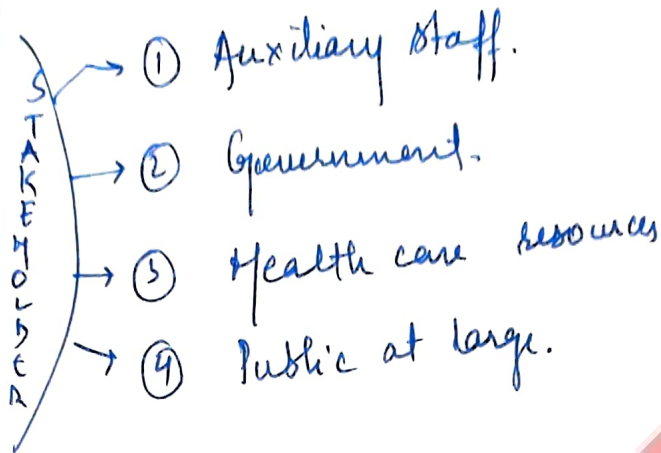 STAKEHOLDER
① Auxiliary staff.
② Government.
③ Health care resources
④ Public at large.